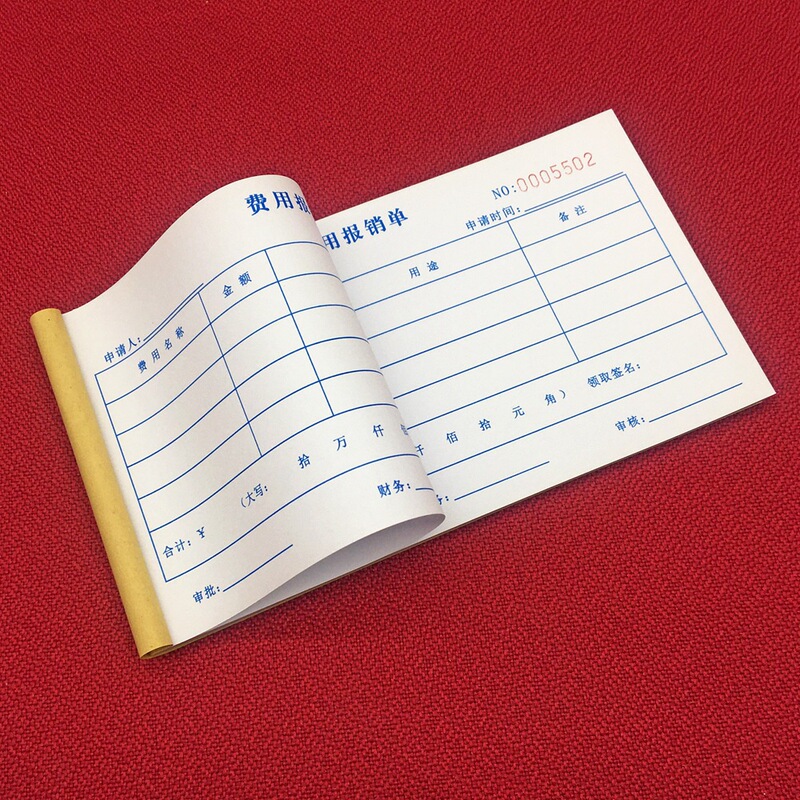 费用报
申请人:
费用名称 金额
合计:￥ (大写: 拾 万 仟
审批: 财务:
用报销单
NO:0005502
申请时间:
用途 备注
仟 佰 拾 元 角) 领取签名:
审核: